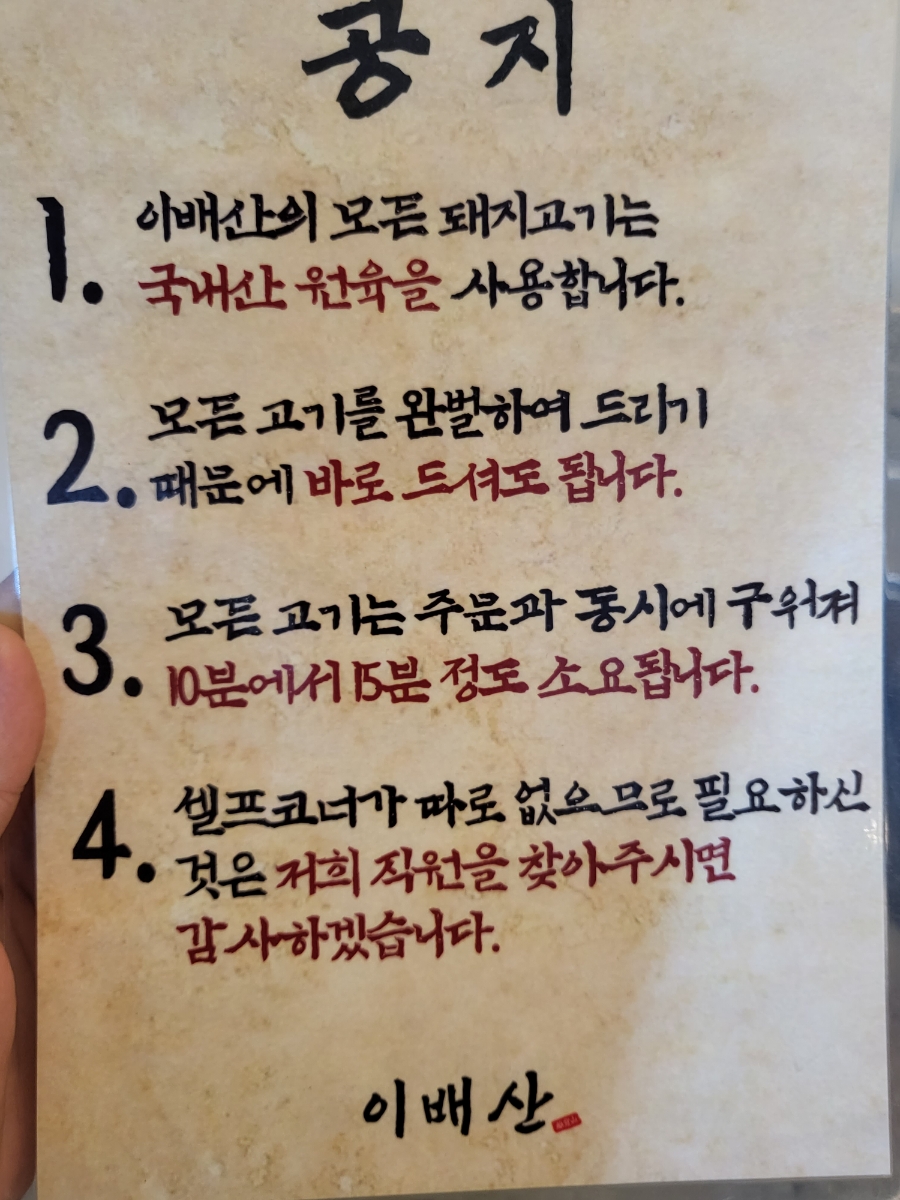 공지
1. 이배산의 모든 돼지고기는
국내산 원육을 사용합니다.
2. 모든 고기를 완벌하여 드리기
때문에 바로 드셔도 됩니다.
3. 모든 고기는 주문과 동시에 구워져
10분에서 15분 정도 소요됩니다.
4. 셀프코너가 따로 없으므로 필요하신
것은 저희 직원을 찾아주시면
감사하겠습니다.
이배산